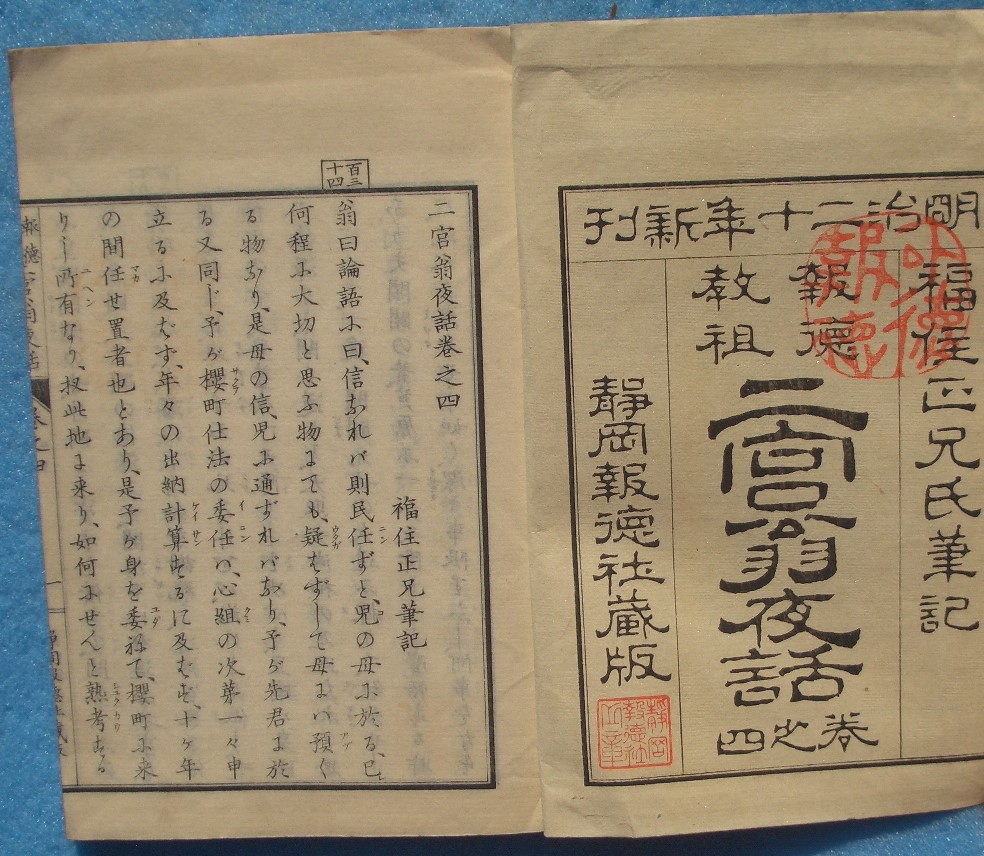 明治二十年新刊
福住正兄氏筆記
報徳
教祖
二宮翁夜話
巻之四
静岡報徳社蔵版
静岡
報徳社
二宮翁夜話巻之四
福住正兄筆記
百三
十四
翁曰論語ふ曰、信あれバ則民任ずと、児の母ふ於る、已
何程ふ大切と思ふ物にても、疑はずして母にハ預く
る物あり、是母の信、児ふ通ずれバあり、予が先君に於
る又同じ、予が櫻町仕法の委任ハ、心組の次第一々申
立るふ及ばず、年々の出納計算するに及ばず、十ヶ年
の間任せ置者也とあり、是予が身を委ねて、櫻町ふ来
りし所有なり、扨此地に来り、如何ふせんと熟考する